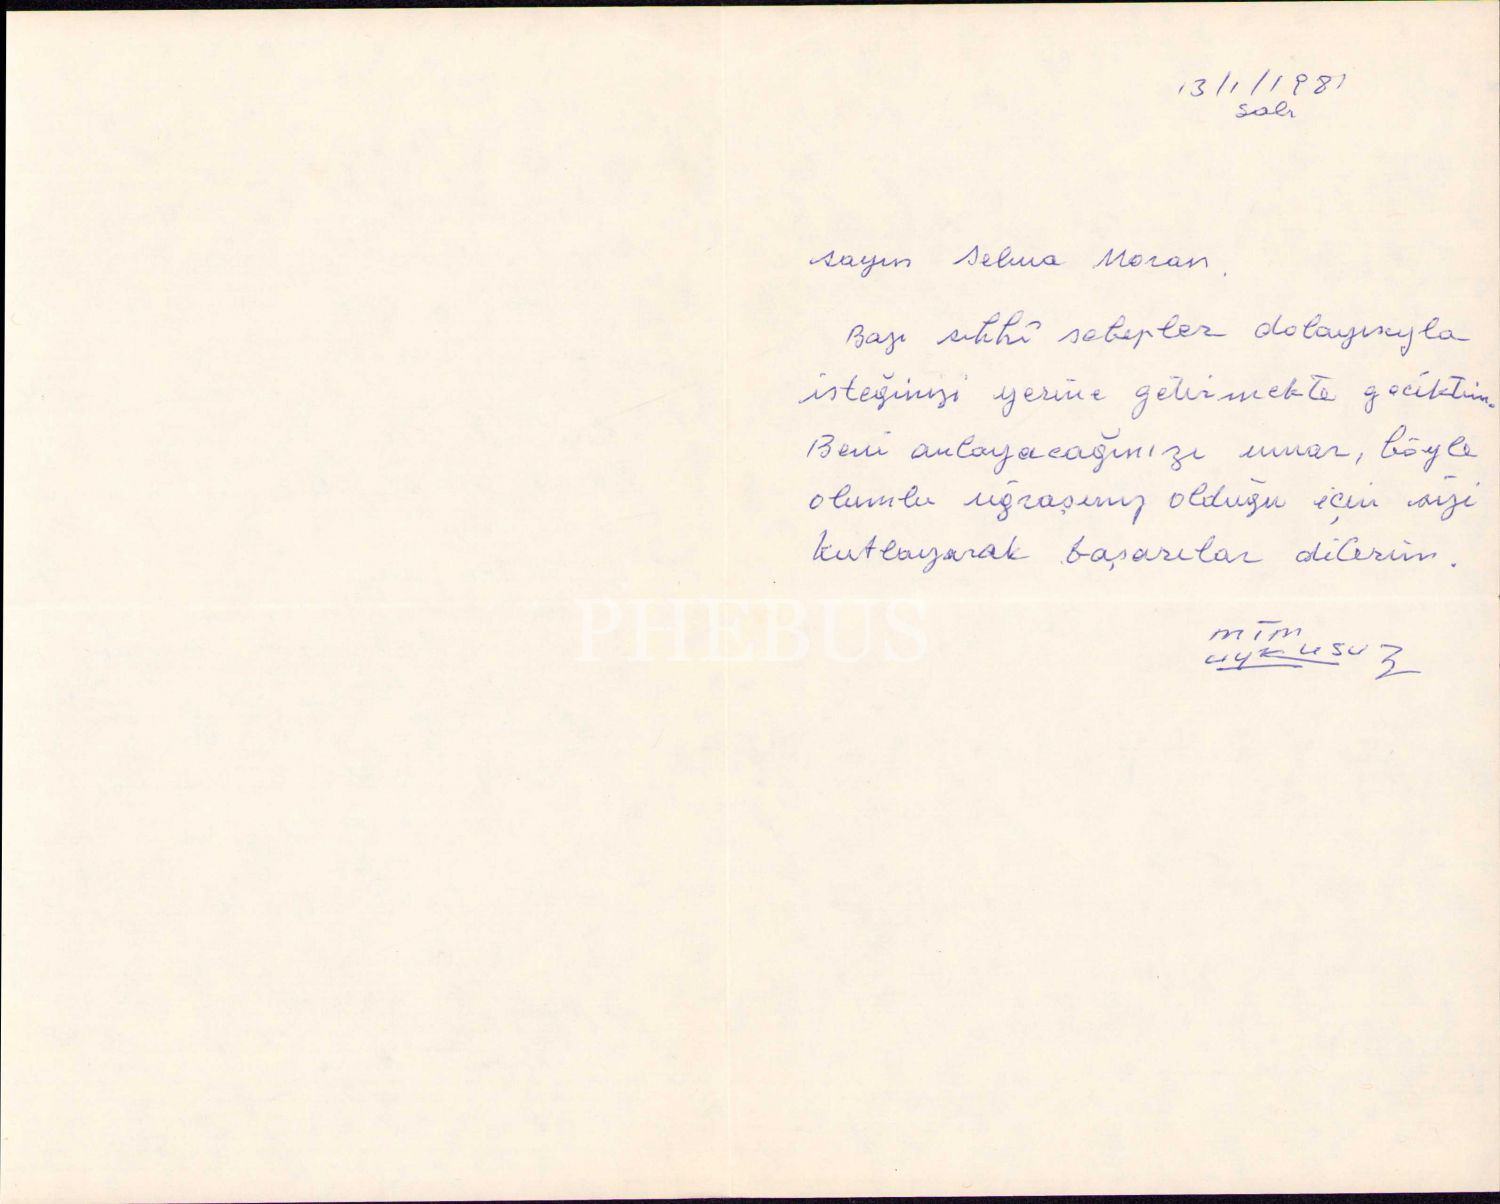 13/1/1981
Salı
Sayın Selma Moran.
Bazı sıhhî sebepler dolayısıyla
isteğinizi yerine getirmekte geciktim.
Beni anlayacağınızı umar, böyle
olumlu uğraşınız olduğu için sizi
kutlayarak başarılar dilerim.
PHEBUS
mim
uykusuz